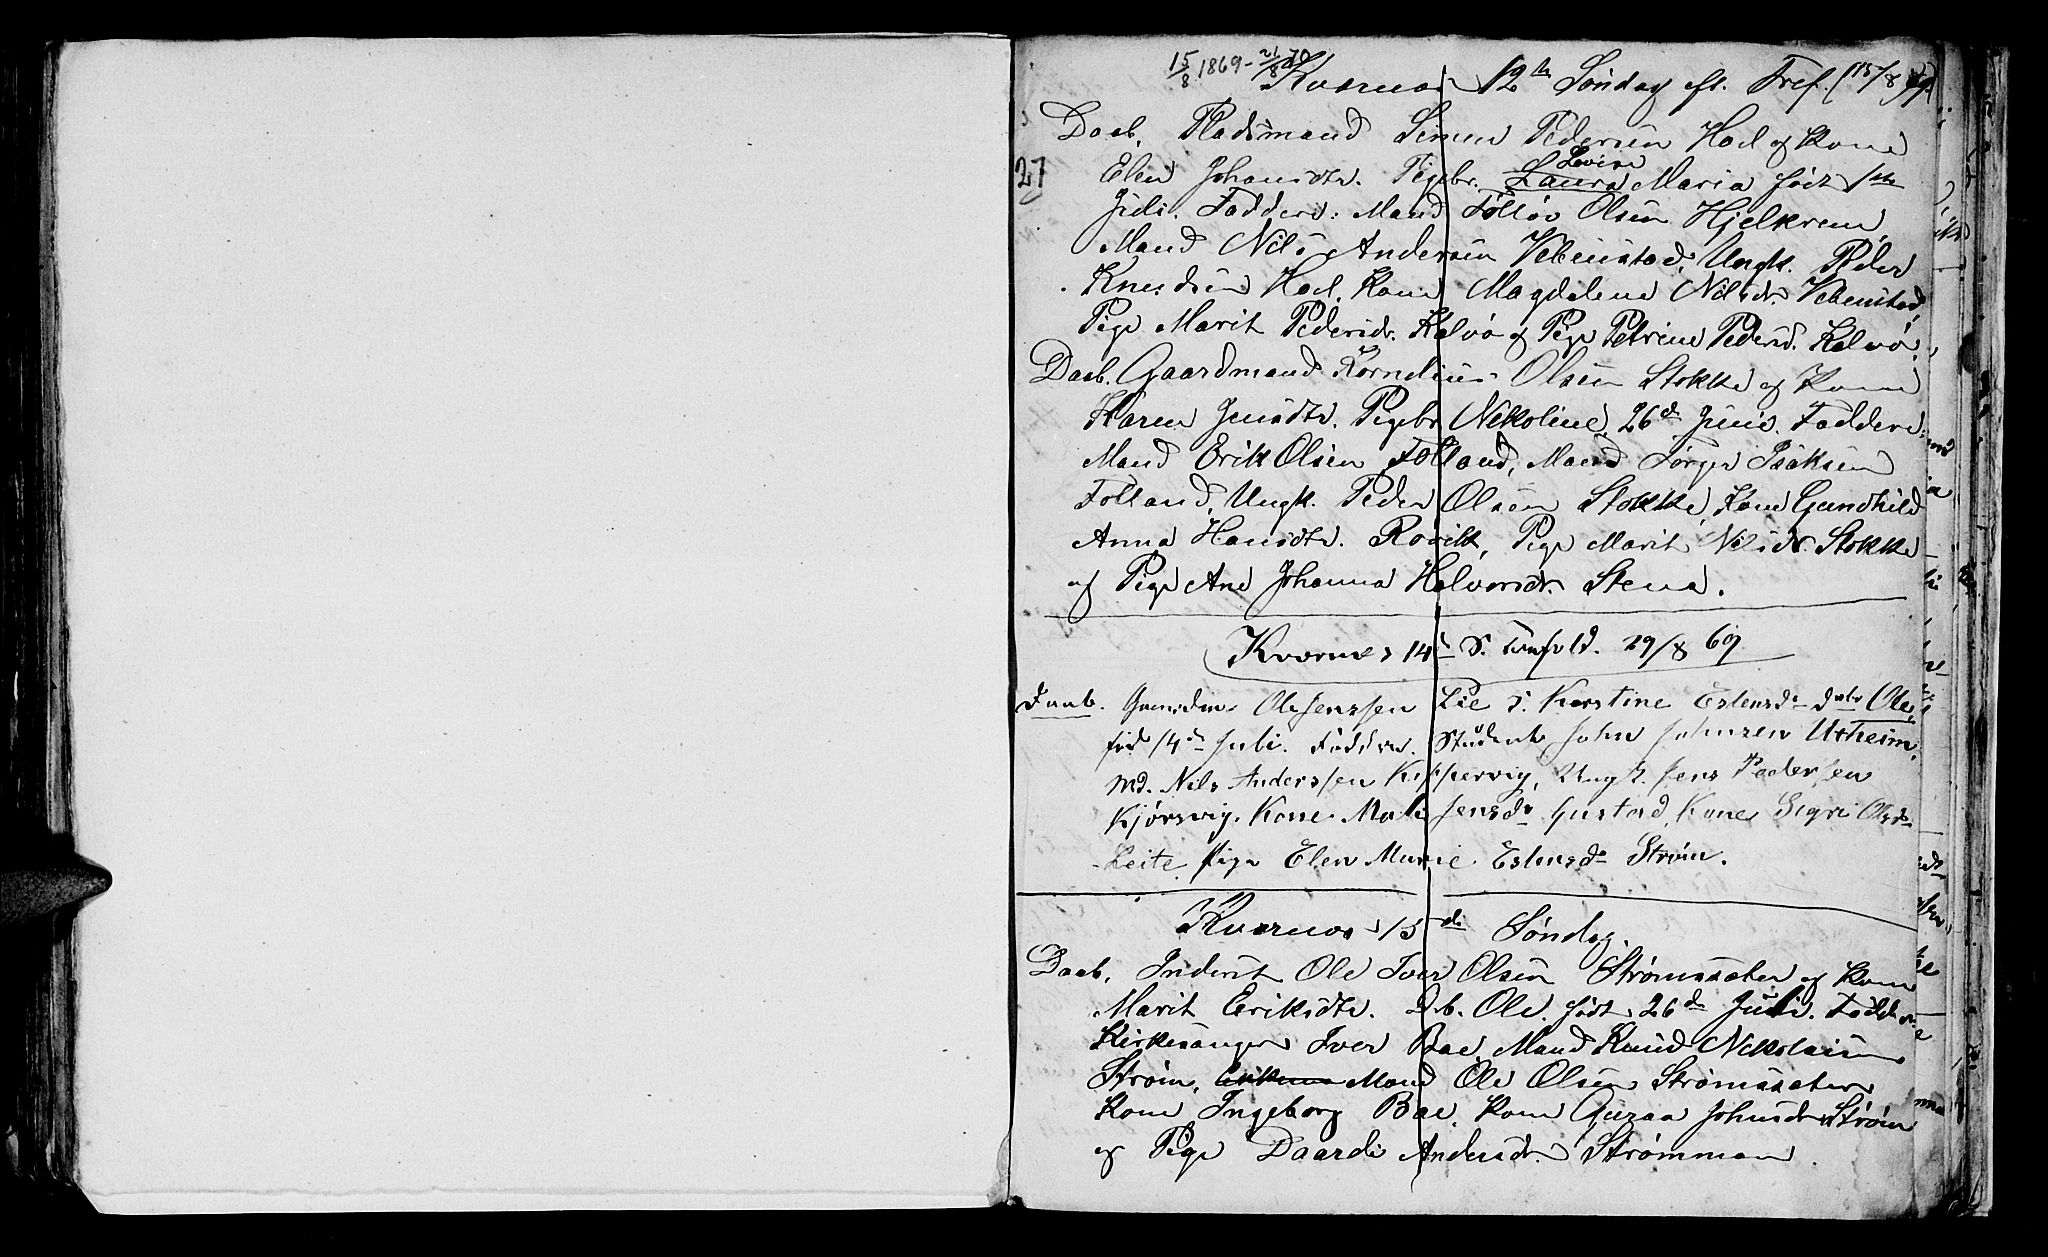 15/8 1869 - 21/8 70
Kvernes 12te Søndag eft. Tref. (15/8 69)
Daab. Pladsmand Simen Pedersen Hoel og Kone
27
Lovise
Elen Johansdtr. Pigebr. Laura Maria født 1ste
Juli. Faddere: Mand Tollöv Olsen Hjelkrem,
Mand Nils Andersen Vebenstad, Ungk. Peder
Knudsen Hoel, Kone Magdalena Nilsdr. Vebenstad,
Pige Marit Pedersdr. Kalvø og Pige Petrine Pedersd. Kalvø.
Daab. Gaardmand Kornelius Olsen Stokke og Kone
Karen Jensdtr. Pigebr Nikoline 26de Juni. Faddere:
Mand Erik Olsen Folland, Mand Torger Isaksen
Folland, Ungk. Peder Olsen Stokke, Kone Gundhild
Anna Hansdtr. Rövik, Pige Marit Nilsdr. Stokke
og Pige Ane Johanna Halvorsdr. Stene.
Kvernes 14d S. Trefold. 29/8 69
Daab. Ole Jenssen Lie o. Kerstine Estensdr Ole,
fød 14de Juli. Faddere. Student John Johnsen Utheim,
Md. Nils Anderssen Kjippervig, Ungk. Jens Pederssen
Kjørsvig. Kone Mali Jensdr Gustad, Kone Sigri Olsdr
Leite, Pige Elen Marie Estensdr Strøm.
Kvernes 15de Søndag.
Daab. Inderst Ole Iver Olsen Strømsæter og Kone
Marit Eriksdtr. Db. Ole født 26de Juli. Faddere
Kirkesanger Iver Bae, Mand Knud Nikolaisen
Strøm, Mand Ole Olsen Strømsæter
Kone Ingeborg Bae, Kone Guraa Johnsdr Strøm
og Pige Daardi Andersdr. Strømman.